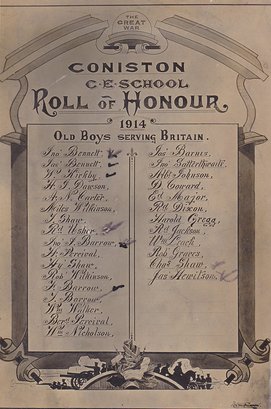 THE
GREAT
WAR
CONISTON
C·E·SCHOOL
ROLL OF HONOUR.
1914
OLD BOYS SERVING BRITAIN.
Jno Bennett.
Jas Bennett.
Wm Kirkby.
H. G. Dawson.
A. N. Carter.
Miles Wilkinson.
J. Shaw.
Rd Usher.
Jno J. Barrow.
H. Percival.
Hy Shaw.
Rob Wilkinson.
H. Barrow.
J. Barrow.
Wm Walker.
Bend Percival.
Wm Nicholson.
Jas Barnes.
Jno Satterthwaite.
Johnson.
D. Coward.
Ed Major.
Rd Dixon.
Harold Gregg.
Rd Jackson.
Wm Peack.
Rob Graves.
Chas Shaw.
Jas Hewitson.